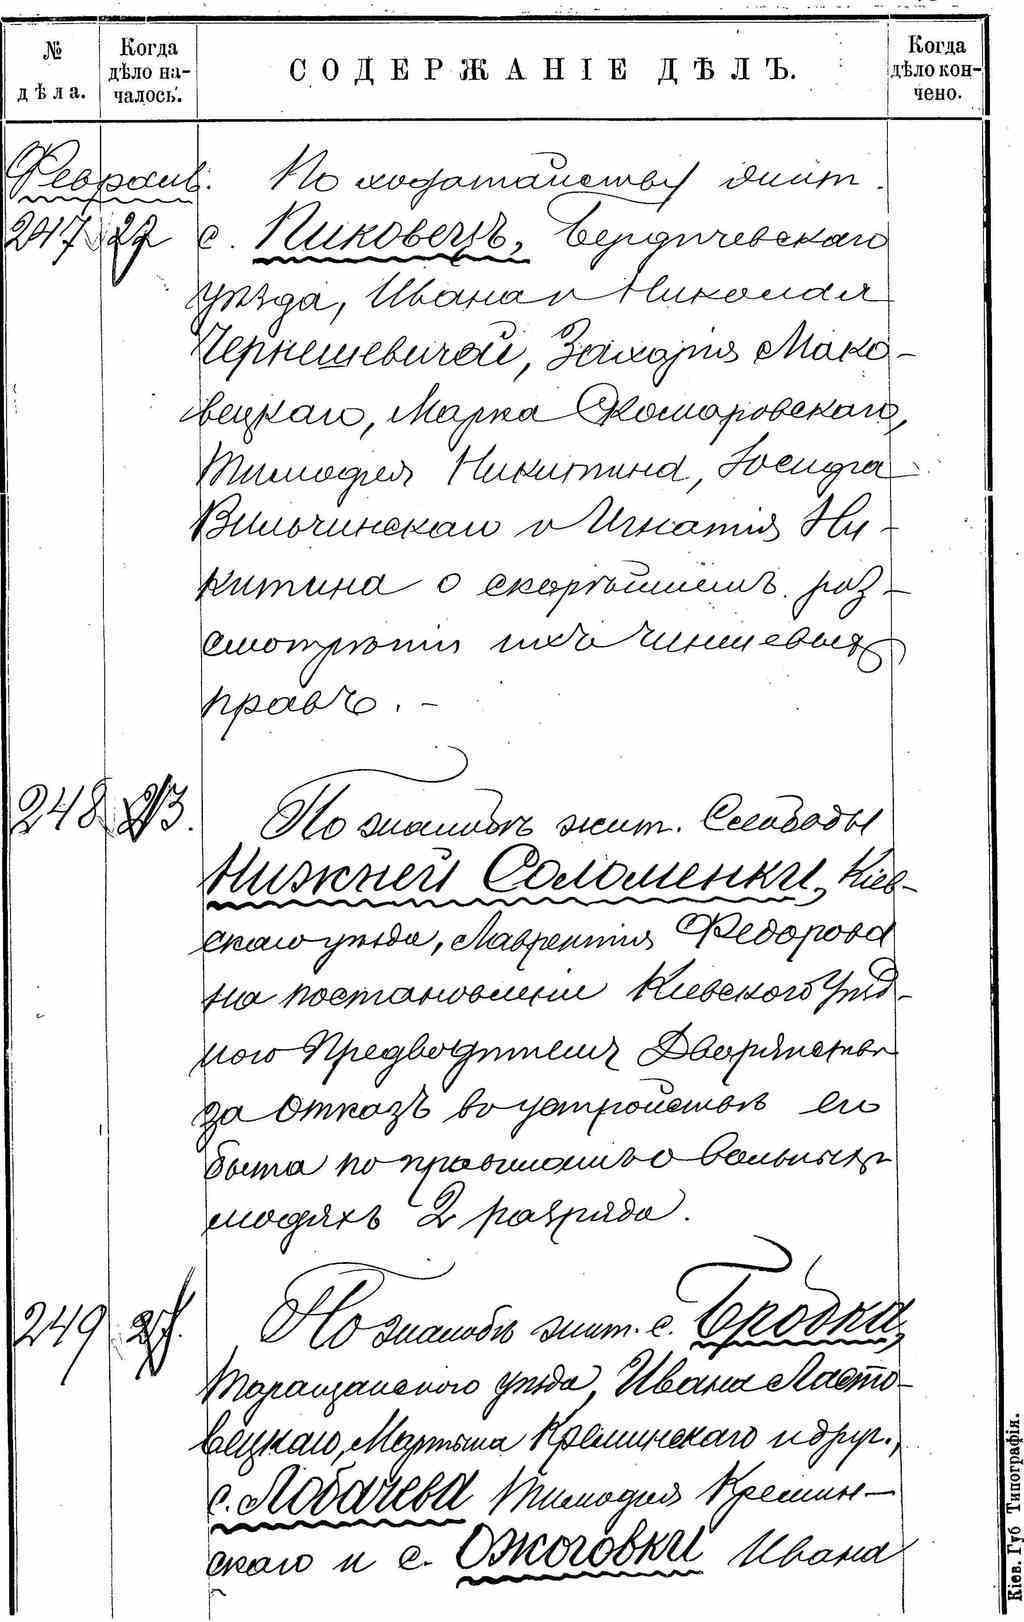 № дѣла.
Когда дѣло началось.
СОДЕРЖАНІЕ ДѢЛЪ.
Когда дѣло кончено.
Февраль. По ходатайству жит.
247 22 с. Пиковецъ, Бердичевскаго
уѣзда, Ивана и Николая
Чернешевичей, Захарія Мако-
вецкаго, Марка Скомаровскаго,
Тимофея Никитина, Іосифа
Вильчинскаго и Игнатія Ни-
китина о скорѣйшемъ раз-
смотрѣніи ихъ чиншевыхъ
правъ. –
248 23. По жалобѣ жит. Слободы
Нижней Соломенки, Кіев-
скаго уѣзда, Лаврентія Федорова
на постановленіе Кіевского Уѣзд-
ного Предводителя Дворянства
за отказъ въ устройствѣ его
быта по правиламъ о вольныхъ
людяхъ 2 разряда.
249 По жалобѣ жит. с. Бродка,
Таращанского уѣзда, Ивана Ласто-
вецкаго, Мартына Креминскаго и друг.,
с. Лобачева Тимофея Кремин-
скаго и с. Ожоговки Ивана
Кіев. Губ Типографія.